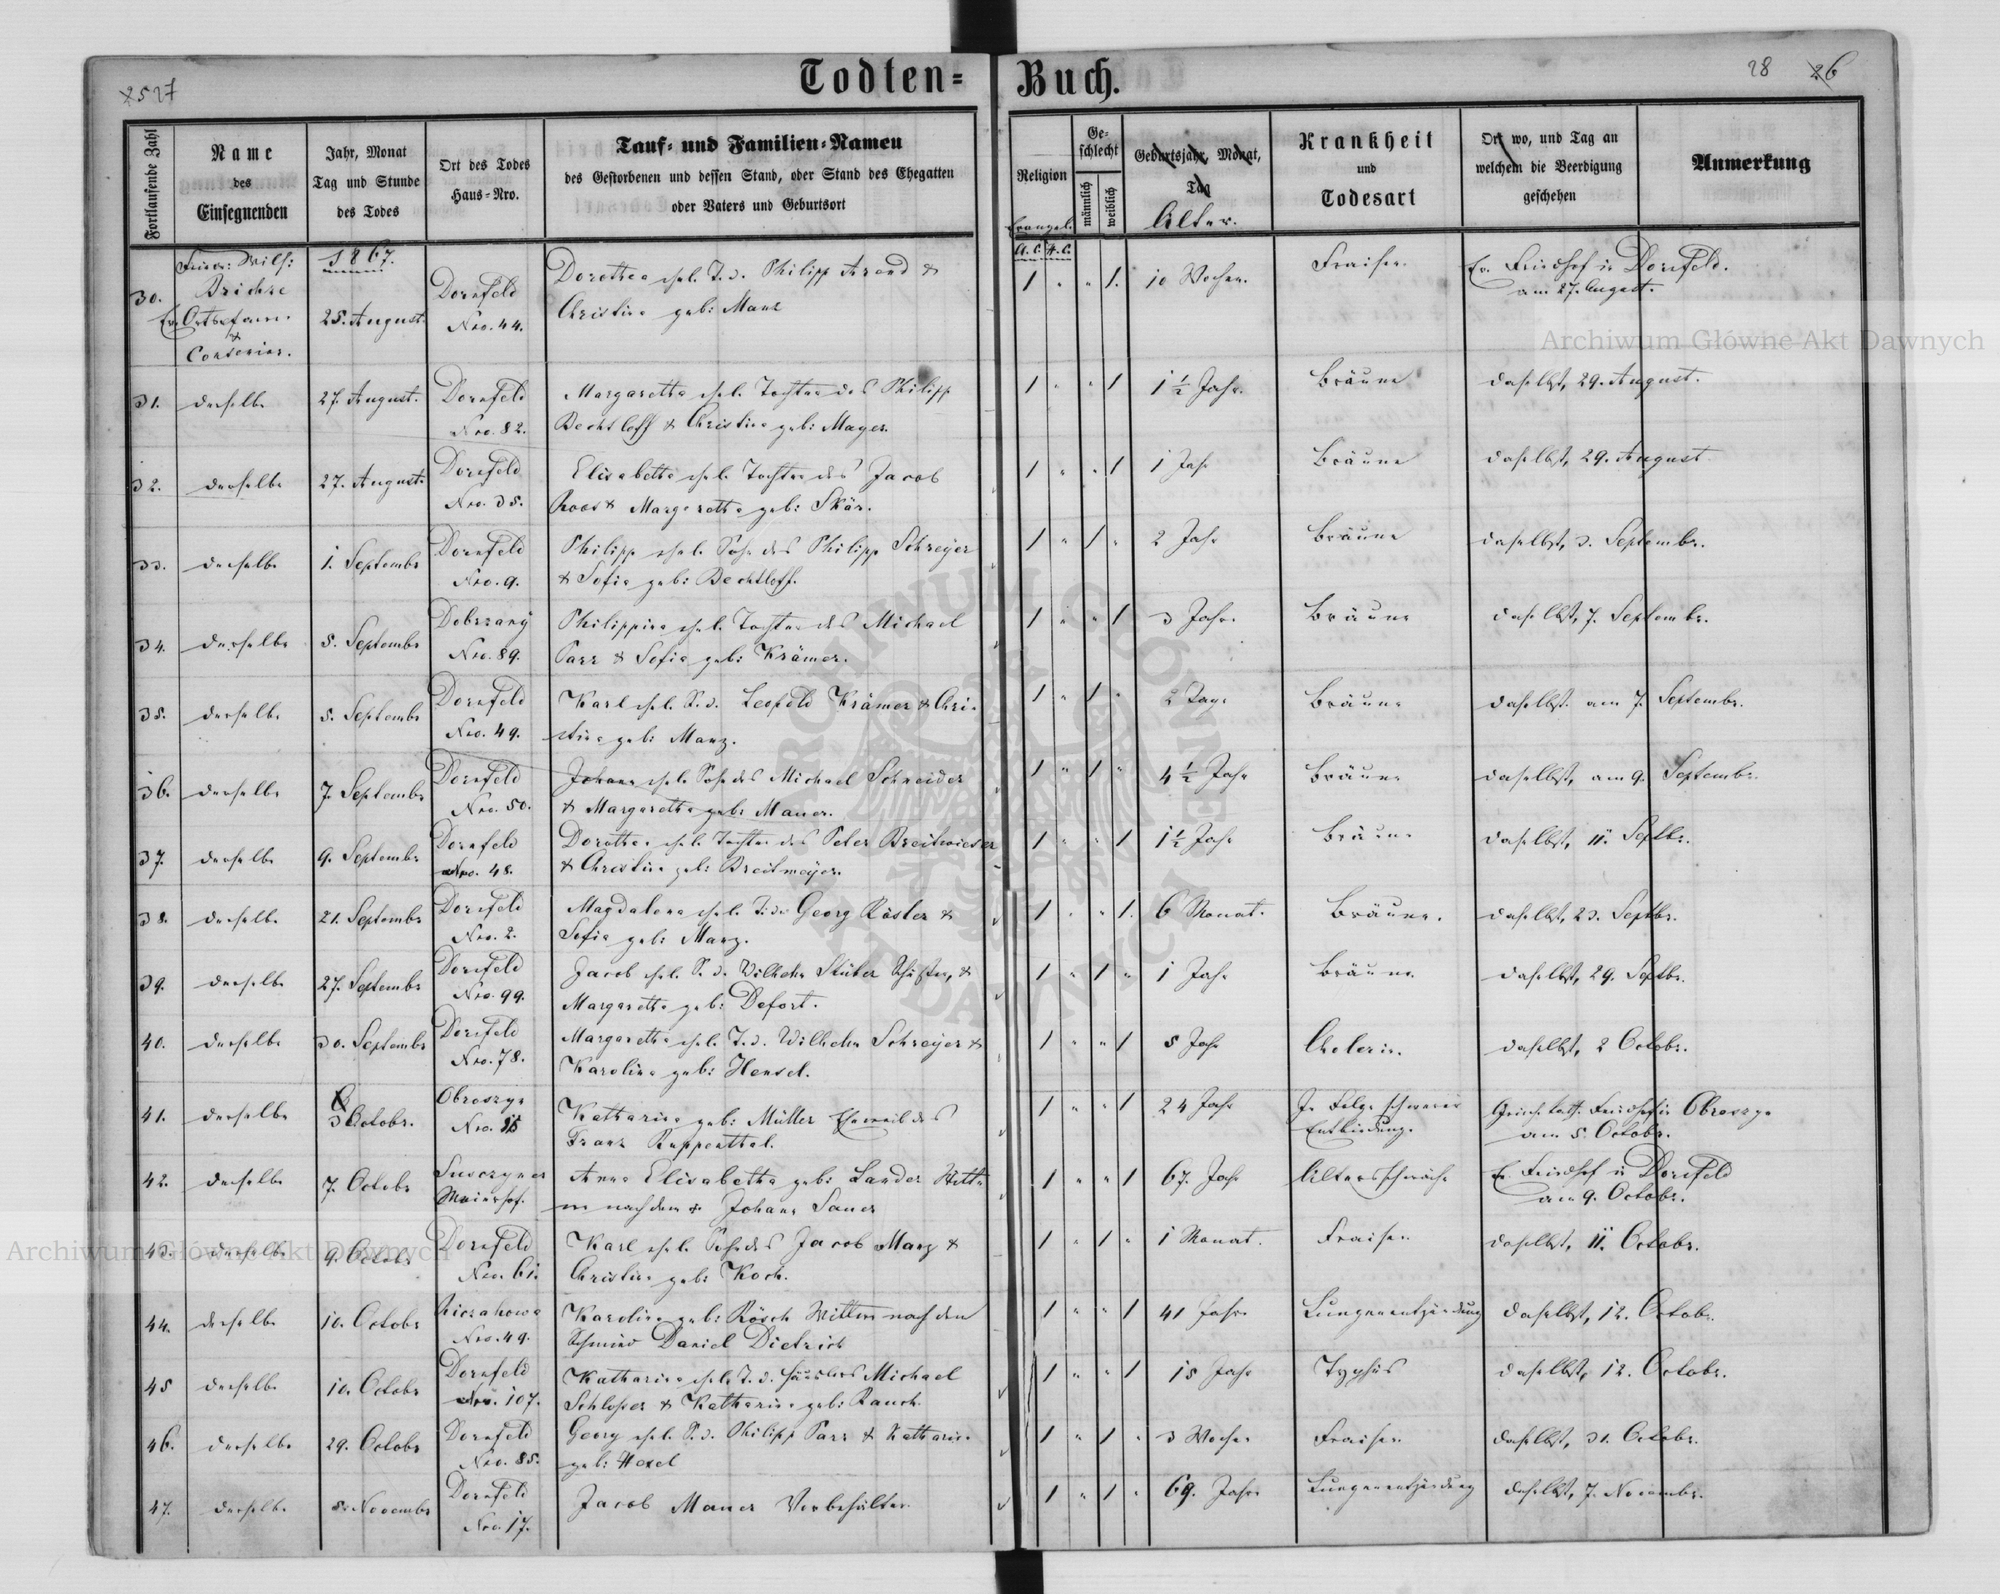 Todten-Buch.
2527
28 26
Fortlaufende Zahl
Name des Einsegnenden
Jahr, Monat Tag und Stunde des Todes
Ort des Todes Haus-Nro.
Tauf- und Familien-Namen
des Gestorbenen und dessen Stand, oder Stand des Ehegatten
oder Vaters und Geburtsort
Religion
Evangel.
A.C. H.C.
Geschlecht
männlich
weiblich
Geburtsjahr, Monat, Tag
Alter.
Krankheit und Todesart
Ort wo, und Tag an welchem die Beerdigung geschehen
Anmerkung
1867.
30. 25. August. Dornfeld Dorothea ehel. T. d. Philipp Arend & 1 " " 1. 10 Wochen. Fraisen. Ev. Friedhof in Dornfeld.
Nro. 44. Christina geb: Manz am 27. August.
31. derselbe 27. August. Dornfeld Margaretha ehel. Tochter des Philipp 1 " " 1 1 1/2 Jahr. Bräune daselbst, 29. August.
Nro. 82. Bechtloff & Christina geb: Mayer.
32. derselbe 27. August. Dornfeld Elisabetha ehel. Tochter des Jacob 1 " " 1 1 Jahr Bräune daselbst, 29. August
Nro. 35. Roos & Margaretha geb: Skär.
33. derselbe 1. Septembr Dornfeld Philipp ehel. Sohn des Philipp Schreyer 1 " 1 " 2 Jahr Bräune daselbst, 3. Septembr.
Nro. 9. & Sofia geb: Bechtloff.
34. derselbe 5. Septembr Dobrzany Philippina ehel. Tochter des Michael 1 " " 1 3 Jahr. Bräune daselbst, 7. Septembr.
Nro. 89. Parr & Sofia geb: Krämer.
35. derselbe 5. Septembr Dornfeld Karl ehel. S. d. Leopold Krämer & Chri- 1 " 1 " 2 Tage Bräune daselbst. am 7. Septembr.
Nro. 49. stina geb: Manz.
36. derselbe 7. Septembr Dornfeld Johann ehel. Sohn des Michael Schneider 1 " 1 " 4 1/2 Jahr Bräune daselbst, am 9. Septembr.
Nro. 50. & Margaretha geb: Mauer.
37. derselbe 9. Septembr Dornfeld Dorothea ehel. Tochter des Peter Breitwieser 1 " " 1 1 1/2 Jahr Bräune daselbst, 11. Septbr.
Nro. 48. & Christina geb: Breitmeyer.
38. derselbe 21. Septembr Dornfeld Magdalena ehel. T. d. Georg Köster & 1 " " 1. 6 Monat. Bräune. daselbst, 23. Septbr.
Nro. 2. Sofia geb: Manz.
39. derselbe 27. Septembr Dornfeld Jacob ehel. S. d. Wilhelm Stüber Schuster, & 1 " 1 " 1 Jahr Bräune daselbst, 29. Septbr.
Nro. 99. Margaretha geb: Defort.
40. derselbe 30. Septembr Dornfeld Margaretha ehel. T. d. Wilhelm Schreyer & 1 " " 1 5 Jahr Cholerin. daselbst, 2 Octobr.
Nro. 78. Karolina geb: Hensel.
41. derselbe 3 Octobr. Obroszyn Katharina geb: Müller Eheweib des 1 " " 1 24 Jahr In Folge schwerer Griech. kath. Friedhof in Obroszyn
Nro. Franz Ruppenthal. Entbindung. am 5. Octobr.
42. derselbe 7. Octobr Anna Elisabetha geb: Sander Witt- 1 " " 1 67. Jahr Altersschwäche Ev. Friedhof in Dornfeld
Maierhof. we nach dem + Johann Sauer am 9. Octobr.
43. derselbe 9. Octobr Dornfeld Karl ehel. Sohn des Jacob Manz & 1 " 1 " 1 Monat. Fraisen daselbst, 11. Octobr.
Nro. 61. Christina geb: Koch.
44. derselbe 10. Octobr Karolina geb: Rösch Wittwe nach dem 1 " " 1 41 Jahr. Lungenentzündung daselbst, 12. Octobr.
Nro. 49. Schmied Daniel Dietrich
45 derselbe 10. Octobr Dornfeld Katharina ehel. T. d. Häuslers Michael 1 " " 1 15 Jahr Typhus daselbst, 12. Octobr.
Nro. 107. Schlosser & Katharina geb: Rauch.
46. derselbe 29. Octobr Dornfeld Georg ehel. S. d. Philipp Parr & Katharina 1 " 1 " 3 Wochen Fraisen daselbst, 31. Octobr.
Nro. 85. geb: Hexel
47. derselbe Novembr Dornfeld Jacob Mauer Vorbehälter 1 " 1 " 69. Jahre Lungenentzündung daselbst, 7. Novembr.
Nro. 17.
Archiwum Główne Akt Dawnych
Archiwum Główne Akt Dawnych
ARCHIWUM GŁÓWNE AKT DAWNYCH